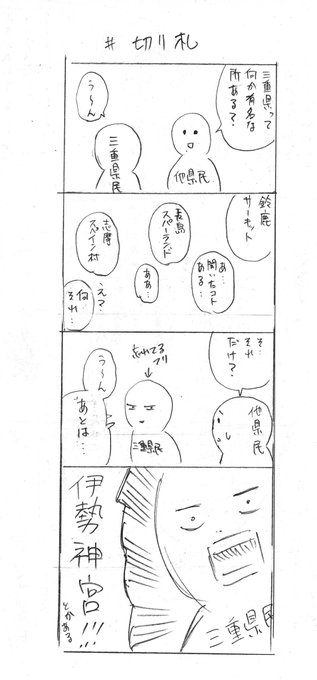 # 切り札
三重県って
何か有名な
所ある？
う〜ん
他県民
三重県民
鈴鹿
サーキット
あ…
聞いたコト
ある…
長島
スパーランド
ああ…
志摩
スペイン村
え？
何
それ…
そ…
それ
だけ？
他県民
忘れてる
フリ
三重県民
う〜ん
あとは…
三重県民
伊勢神宮!!!
とかある